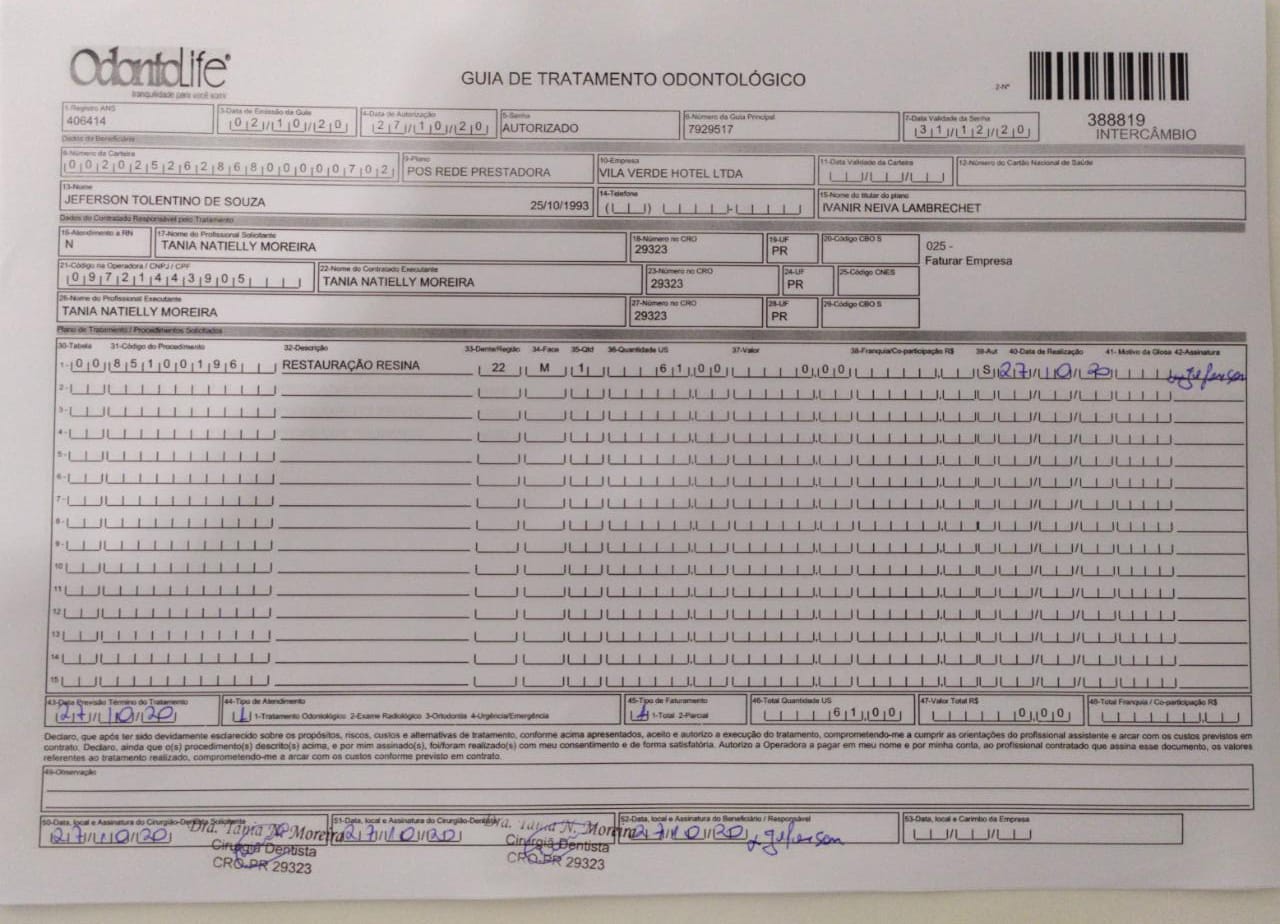 OdontoLife®
tranquilidade para você sorrir
GUIA DE TRATAMENTO ODONTOLÓGICO
2-Nº
388819
INTERCÂMBIO
1-Registro ANS
406414
3-Data de Emissão da Guia
02/10/20
4-Data de Autorização
27/10/20
5-Senha
AUTORIZADO
6-Número da Guia Principal
7929517
7-Data Validade da Senha
31/12/20
Dados do Beneficiário
8-Número da Carteira
00202526286800000702
9-Plano
POS REDE PRESTADORA
10-Empresa
VILA VERDE HOTEL LTDA
11-Data Validade da Carteira
12-Número do Cartão Nacional de Saúde
13-Nome
JEFERSON TOLENTINO DE SOUZA 25/10/1993
14-Telefone
15-Nome do titular do plano
IVANIR NEIVA LAMBRECHET
Dados do Contratado Responsável pelo Tratamento
16-Atendimento a RN
N
17-Nome do Profissional Solicitante
TANIA NATIELLY MOREIRA
18-Número no CRO
29323
19-UF
PR
20-Código CBO S
025 -
Faturar Empresa
21-Código na Operadora / CNPJ / CPF
09721443905
22-Nome do Contratado Executante
TANIA NATIELLY MOREIRA
23-Número no CRO
29323
24-UF
PR
25-Código CNES
26-Nome do Profissional Executante
TANIA NATIELLY MOREIRA
27-Número no CRO
29323
28-UF
PR
29-Código CBO S
Plano de Tratamento / Procedimentos Solicitados
30-Tabela 31-Código do Procedimento 32-Descrição 33-Dente/Região 34-Face 35-Qtd 36-Quantidade US 37-Valor 38-Franquia/Co-participação R$ 39-Aut 40-Data de Realização 41- Motivo da Glosa 42-Assinatura
1- 00 85100196 RESTAURAÇÃO RESINA 22 M 1 61,00 0,00 S 27/10/20 Jeferson
2-
3-
4-
5-
6-
7-
8-
9-
10
11
12
13
14
15
43-Data Previsão Término do Tratamento
27/10/20
44-Tipo de Atendimento
1 1-Tratamento Odontológico 2-Exame Radiológico 3-Ortodontia 4-Urgência/Emergência
45-Tipo de Faturamento
1 1-Total 2-Parcial
46-Total Quantidade US
61,00
47-Valor Total R$
0,00
48-Total Franquia / Co-participação R$
Declaro, que após ter sido devidamente esclarecido sobre os propósitos, riscos, custos e alternativas de tratamento, conforme acima apresentados, aceito e autorizo a execução do tratamento, comprometendo-me a cumprir as orientações do profissional assistente e arcar com os custos previstos em
contrato. Declaro, ainda que o(s) procedimento(s) descrito(s) acima, e por mim assinado(s), foi/foram realizado(s) com meu consentimento e de forma satisfatória. Autorizo a Operadora a pagar em meu nome e por minha conta, ao profissional contratado que assina esse documento, os valores
referentes ao tratamento realizado, comprometendo-me a arcar com os custos conforme previsto em contrato.
49-Observação
50-Data, local e Assinatura do Cirurgião-Dentista Solicitante
27/10/20
Dra. Tania N. Moreira
Cirurgiã Dentista
CRO-PR 29323
51-Data, local e Assinatura do Cirurgião-Dentista
27/10/20
Dra. Tania N. Moreira
Cirurgiã Dentista
CRO-PR 29323
52-Data, local e Assinatura do Beneficiário / Responsável
27/10/20 Jeferson
53-Data, local e Carimbo da Empresa